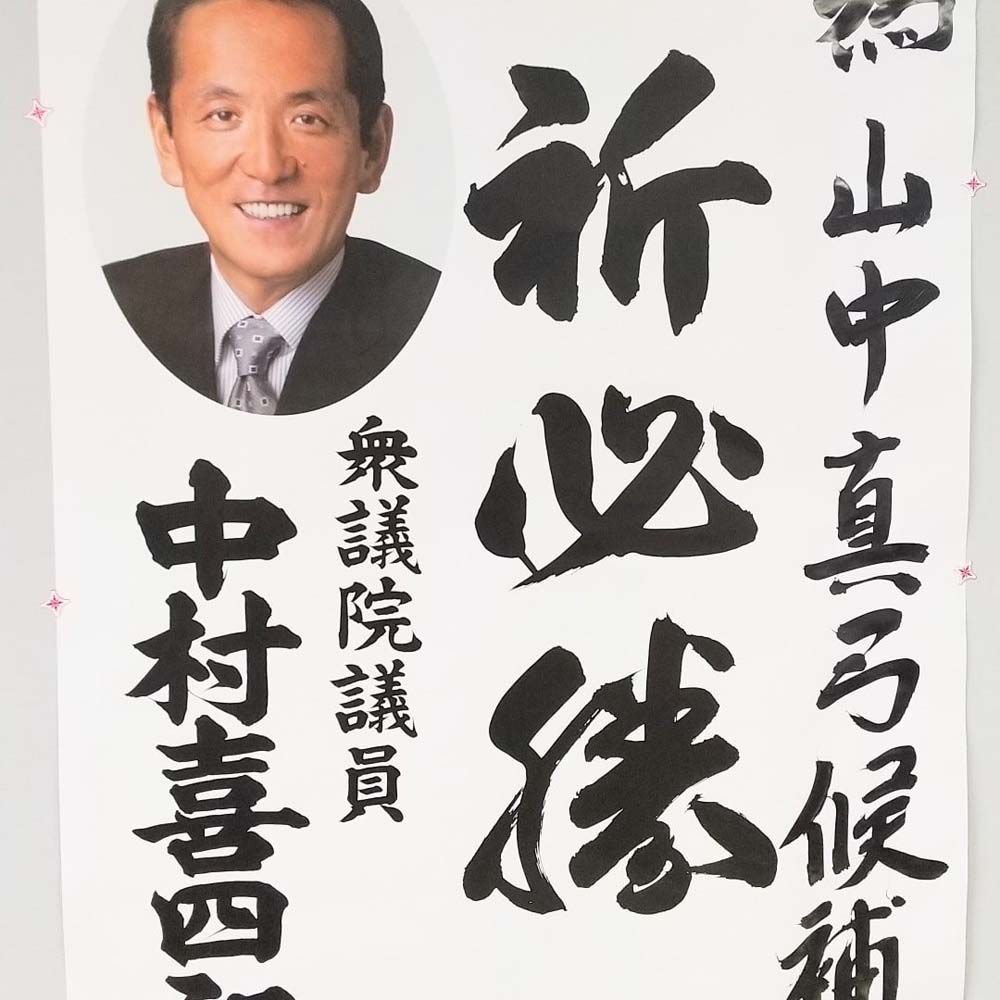 山中真弓候補
祈必勝
衆議院議員
中村喜四